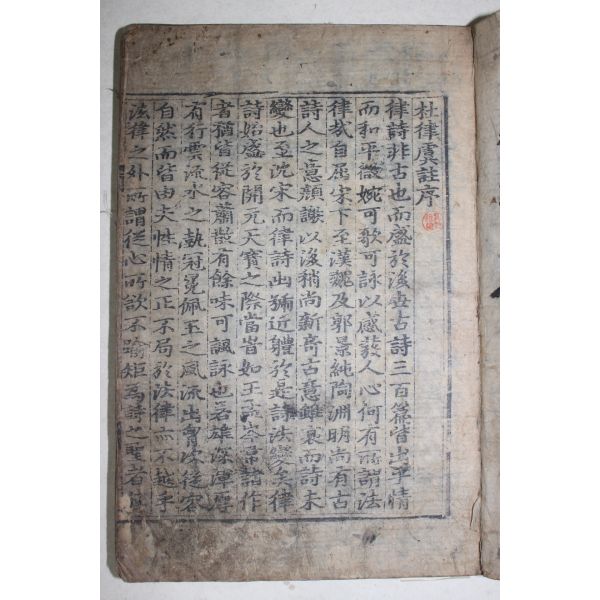 杜律虞註序
律詩非古也而盛於後世古詩三百篇皆出乎情
而和平微婉可歌可詠以感發人心何有所謂法
律哉自屈宋下至漢魏及郭景純陶淵明尚有古
詩人之意顔謝以後稍尚新奇古意雖衰而詩未
變也至沈宋而律詩出號近體於是詩法變矣律
詩始盛於開元天寶之際當時如王孟岑韋諸作
者猶皆從容蕭散有餘味可諷詠也若雄深渾厚
有行雲流水之埶冠冕佩玉之風流出胷次從容
自然而皆由夫性情之正不局於法律亦不越乎
法律之外所謂從心所欲不喻矩爲詩之聖者